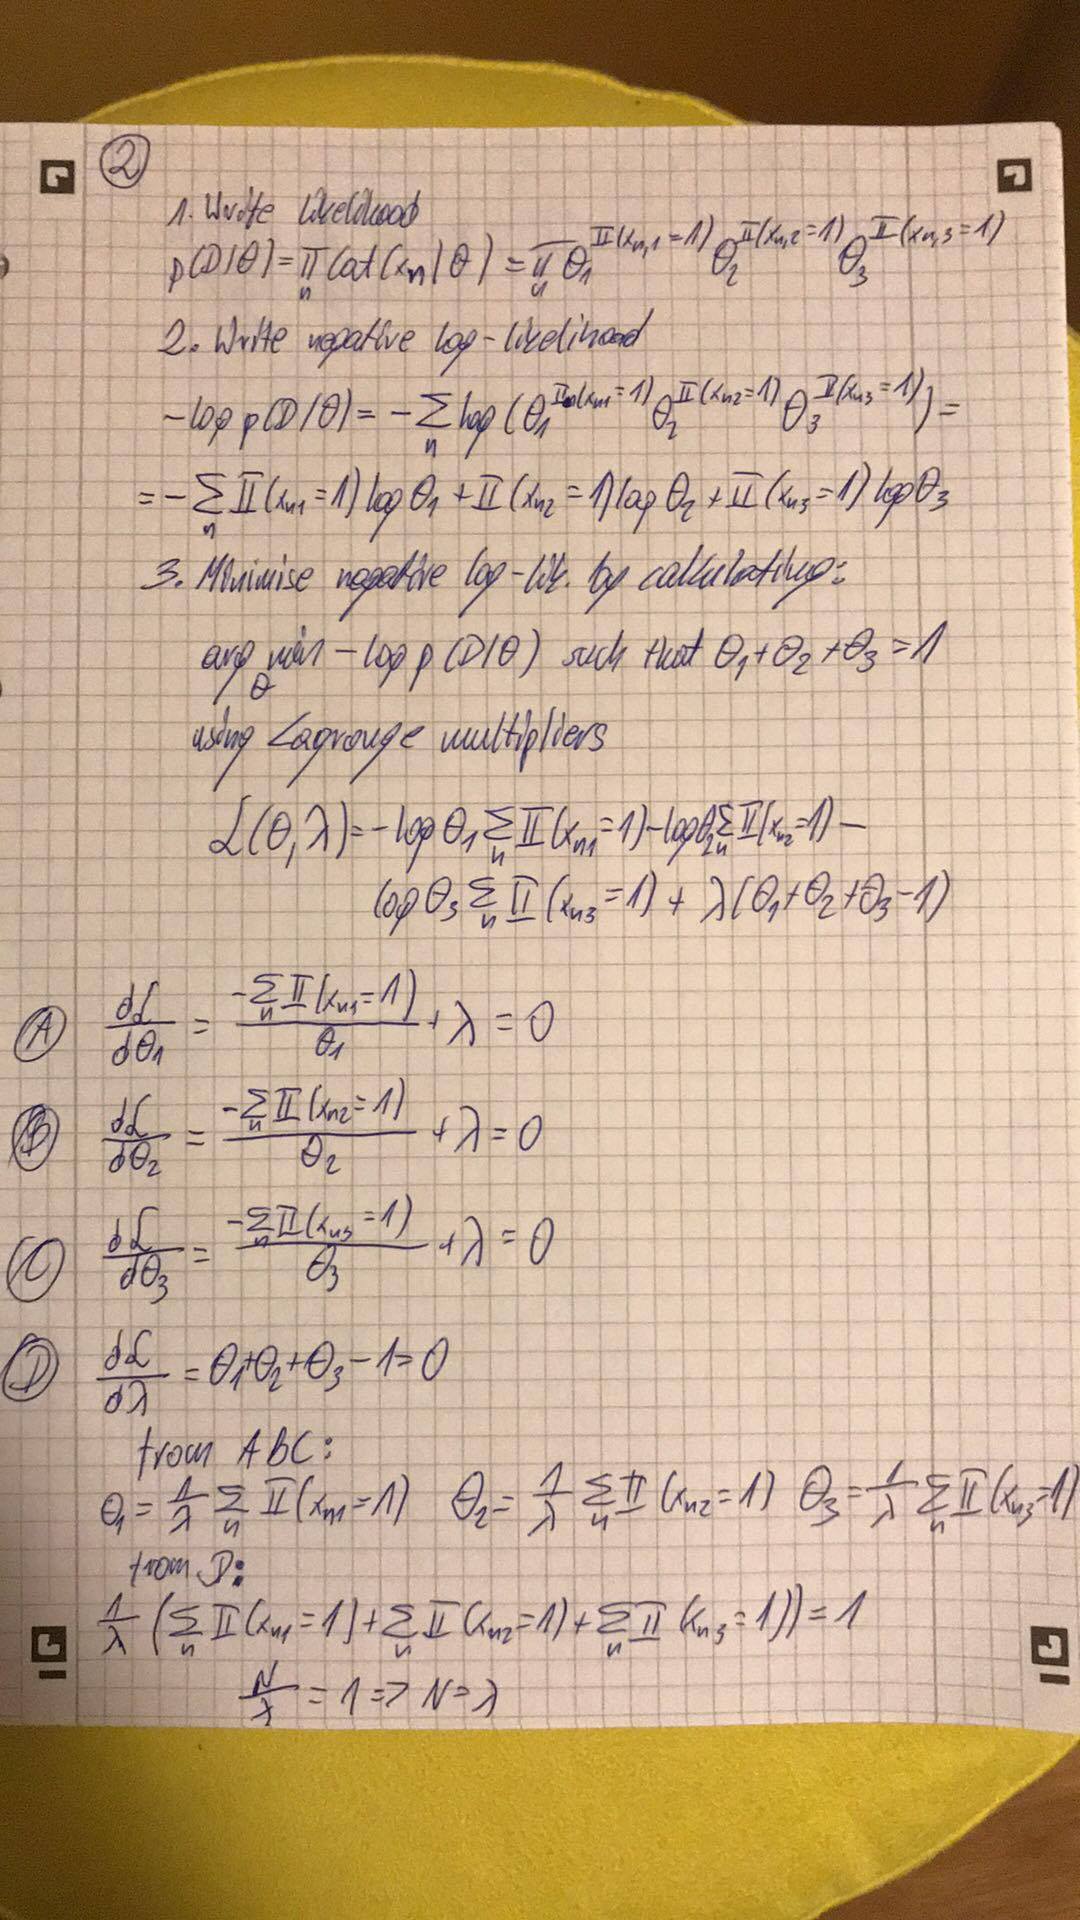 ②
1. Write likelihood
p(D|θ) = ∏_n Cat(x_n|θ) = ∏_n θ_1^{𝕀(x_{n,1}=1)} θ_2^{𝕀(x_{n,2}=1)} θ_3^{𝕀(x_{n,3}=1)}
2. Write negative log-likelihood
-log p(D|θ) = -∑_n log(θ_1^{𝕀(x_{n1}=1)} θ_2^{𝕀(x_{n2}=1)} θ_3^{𝕀(x_{n3}=1)}) =
= -∑_n 𝕀(x_{n1}=1) log θ_1 + 𝕀(x_{n2}=1) log θ_2 + 𝕀(x_{n3}=1) log θ_3
3. Minimise negative log-lik. by calculating:
arg min_θ -log p(D|θ) such that θ_1+θ_2+θ_3=1
using Lagrange multipliers
ℒ(θ,λ) = -log θ_1 ∑_n 𝕀(x_{n1}=1) - log θ_2 ∑_n 𝕀(x_{n2}=1) -
log θ_3 ∑_n 𝕀(x_{n3}=1) + λ(θ_1+θ_2+θ_3-1)
Ⓐ dℒ/dθ_1 = -∑_n 𝕀(x_{n1}=1)/θ_1 + λ = 0
Ⓑ dℒ/dθ_2 = -∑_n 𝕀(x_{n2}=1)/θ_2 + λ = 0
Ⓒ dℒ/dθ_3 = -∑_n 𝕀(x_{n3}=1)/θ_3 + λ = 0
Ⓓ dℒ/dλ = θ_1+θ_2+θ_3-1=0
from ABC:
θ_1 = 1/λ ∑_n 𝕀(x_{n1}=1) θ_2 = 1/λ ∑_n 𝕀(x_{n2}=1) θ_3 = 1/λ ∑_n 𝕀(x_{n3}=1)
from D:
1/λ (∑_n 𝕀(x_{n1}=1) + ∑_n 𝕀(x_{n2}=1) + ∑_n 𝕀(x_{n3}=1)) = 1
N/λ = 1 => N = λ